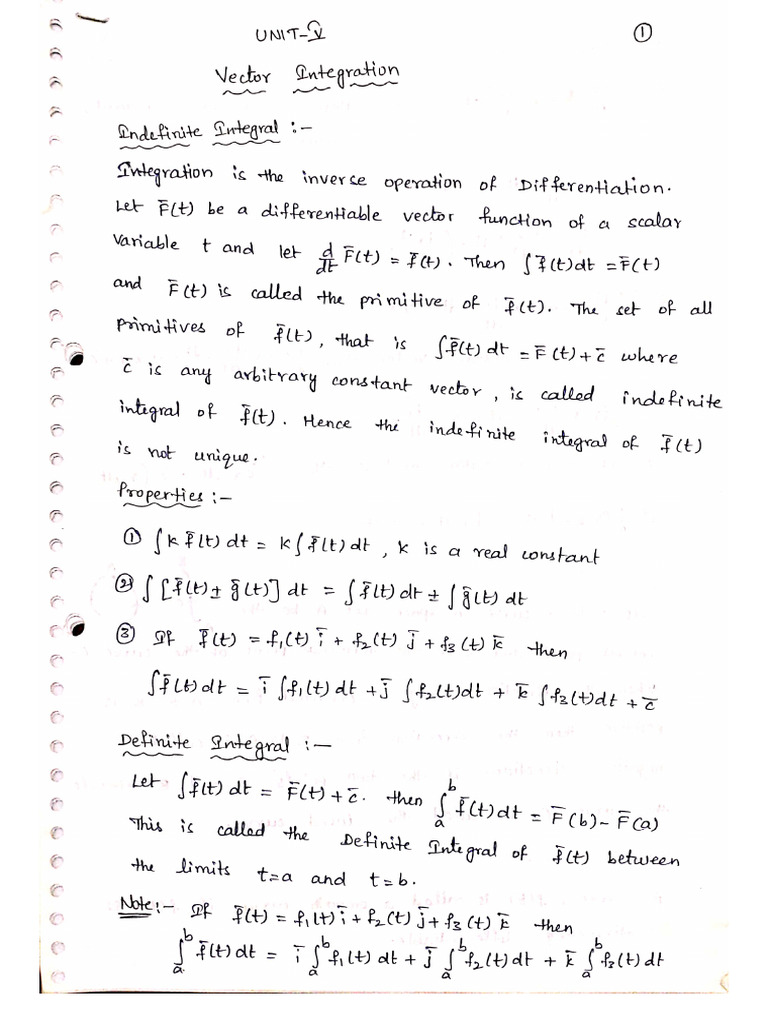 UNIT-V
①
Vector Integration
Indefinite Integral :-
Integration is the inverse operation of Differentiation.
Let F̄(t) be a differentiable vector function of a scalar
variable t and let d/dt F̄(t) = f̄(t). Then ∫f̄(t)dt = F̄(t)
and F̄(t) is called the primitive of f̄(t). The set of all
primitives of f̄(t), that is ∫f̄(t) dt = F̄(t) + c̄ where
c̄ is any arbitrary constant vector, is called indefinite
integral of f̄(t). Hence the indefinite integral of f̄(t)
is not unique.
Properties :-
① ∫k f̄(t) dt = k∫f̄(t) dt, k is a real constant
② ∫[f̄(t) ± ḡ(t)] dt = ∫f̄(t) dt ± ∫ḡ(t) dt
③ If f̄(t) = f₁(t) ī + f₂(t) j̄ + f₃(t) k̄ then
∫f̄(t) dt = ī ∫f₁(t) dt + j̄ ∫f₂(t)dt + k̄ ∫f₃(t)dt + c̄
Definite Integral :-
Let ∫f̄(t) dt = F̄(t) + c̄. then ∫ₐᵇ f̄(t) dt = F̄(b) - F̄(a)
This is called the Definite Integral of f̄(t) between
the limits t=a and t=b.
Note:- If f̄(t) = f₁(t) ī + f₂(t) j̄ + f₃(t) k̄ then
∫ₐᵇ f̄(t) dt = ī ∫ₐᵇ f₁(t) dt + j̄ ∫ₐᵇ f₂(t) dt + k̄ ∫ₐᵇ f₃(t) dt